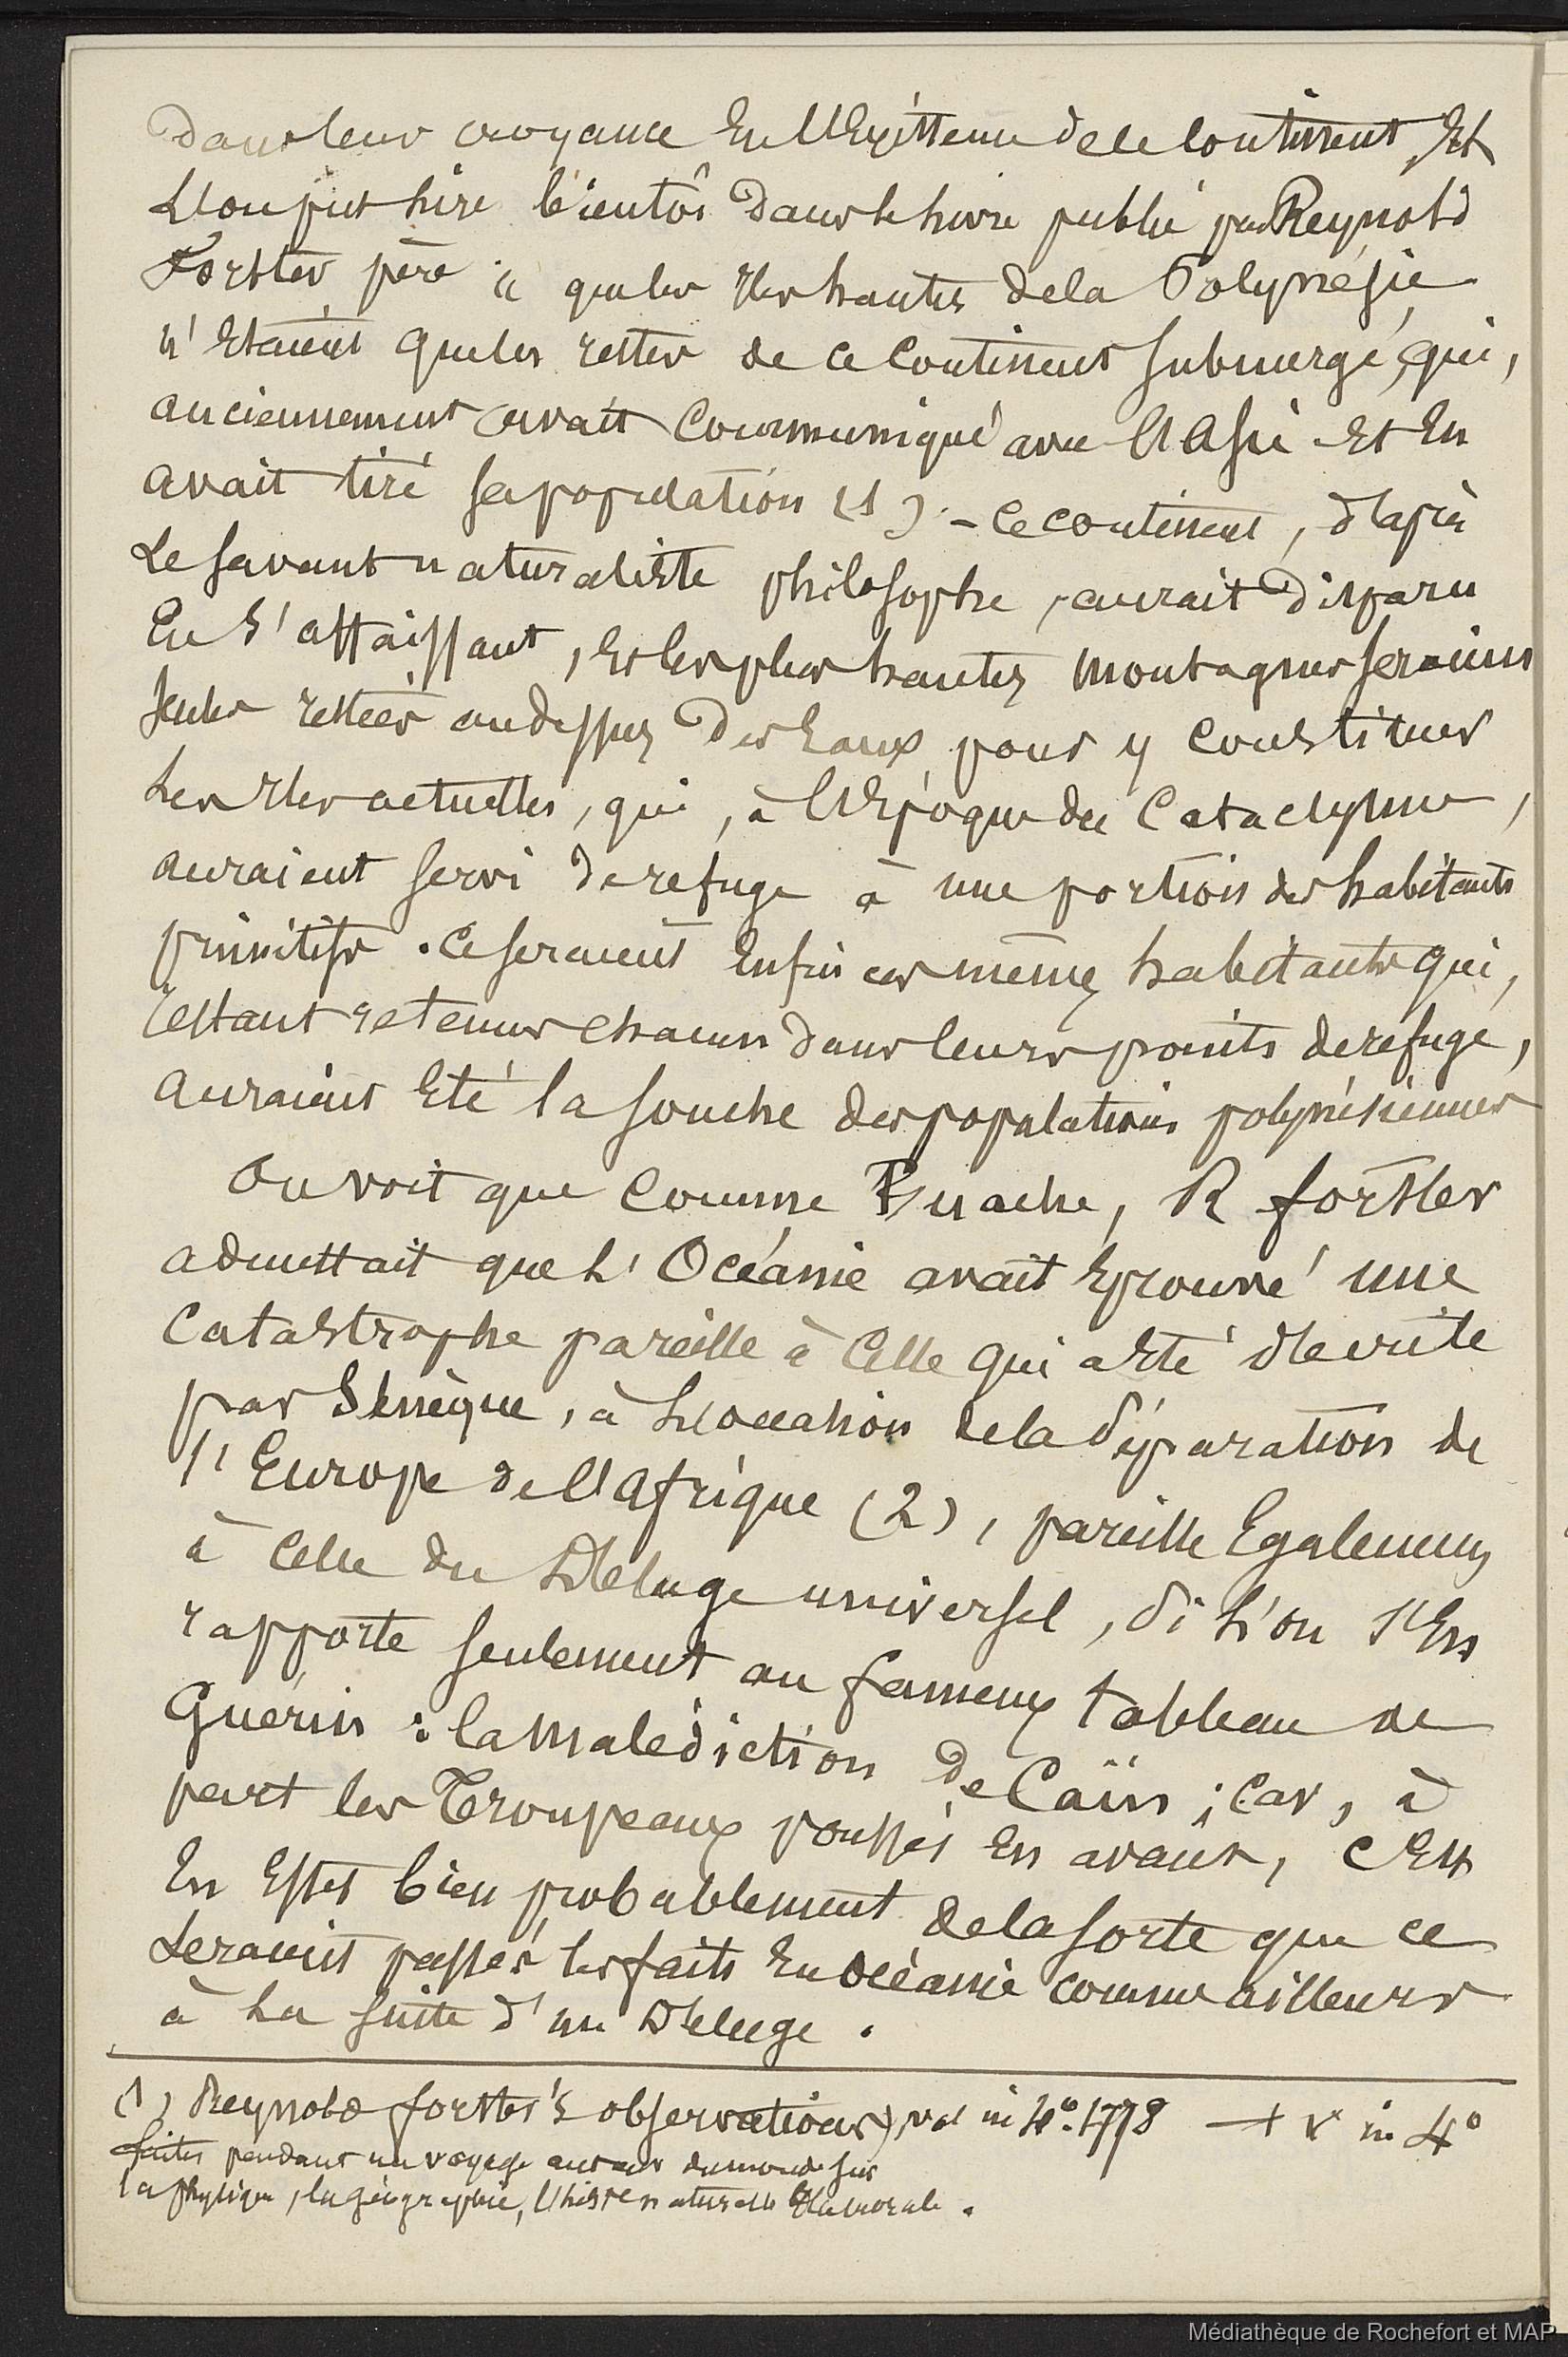 dans leur croyance en l'existence de ce continent, et
l'on put lire bientôt dans le livre publié par Reynold
Forster père « que les îles hautes de la Polynésie
n'étaient que les restes de ce continent submergé, qui,
anciennement avait communiqué avec l'Asie et en
avait tiré sa population (1). - Ce continent, d'après
le savant naturaliste philosophe, aurait disparu
en s'affaissant, et les plus hautes montagnes seraient
seules restées au dessus des eaux pour y constituer
les îles actuelles, qui, à l'époque du cataclysme,
auraient servi de refuge à une portion des habitants
primitifs. Ce seraient enfin ces mêmes habitants qui,
restant retenus chacun dans leurs points de refuge,
auraient été la souche des populations polynésiennes
On voit que comme Buache, R forster
admettait que l'Océanie avait éprouvé une
catastrophe pareille à celle qui a été décrite
par Sénèque, à l'occasion de la séparation de
l'Europe de l'Afrique (2), pareille également
à celle du Déluge universel, si l'on s'en
rapporte seulement au fameux tableau de
Guérin : la Malédiction de Caïn ; car, à
part les troupeaux poussés en avant, c'est
en effet bien probablement de la sorte que ce
seraient passés les faits en océanie comme ailleurs
à la suite d'un Déluge.
(1) Reynold forster's observations, vol in 4°. 1778 → v in 4°
faites pendant un voyage autour du monde sur
la physique, la géographie, l'histre naturelle et la morale.
Médiathèque de Rochefort et MAP